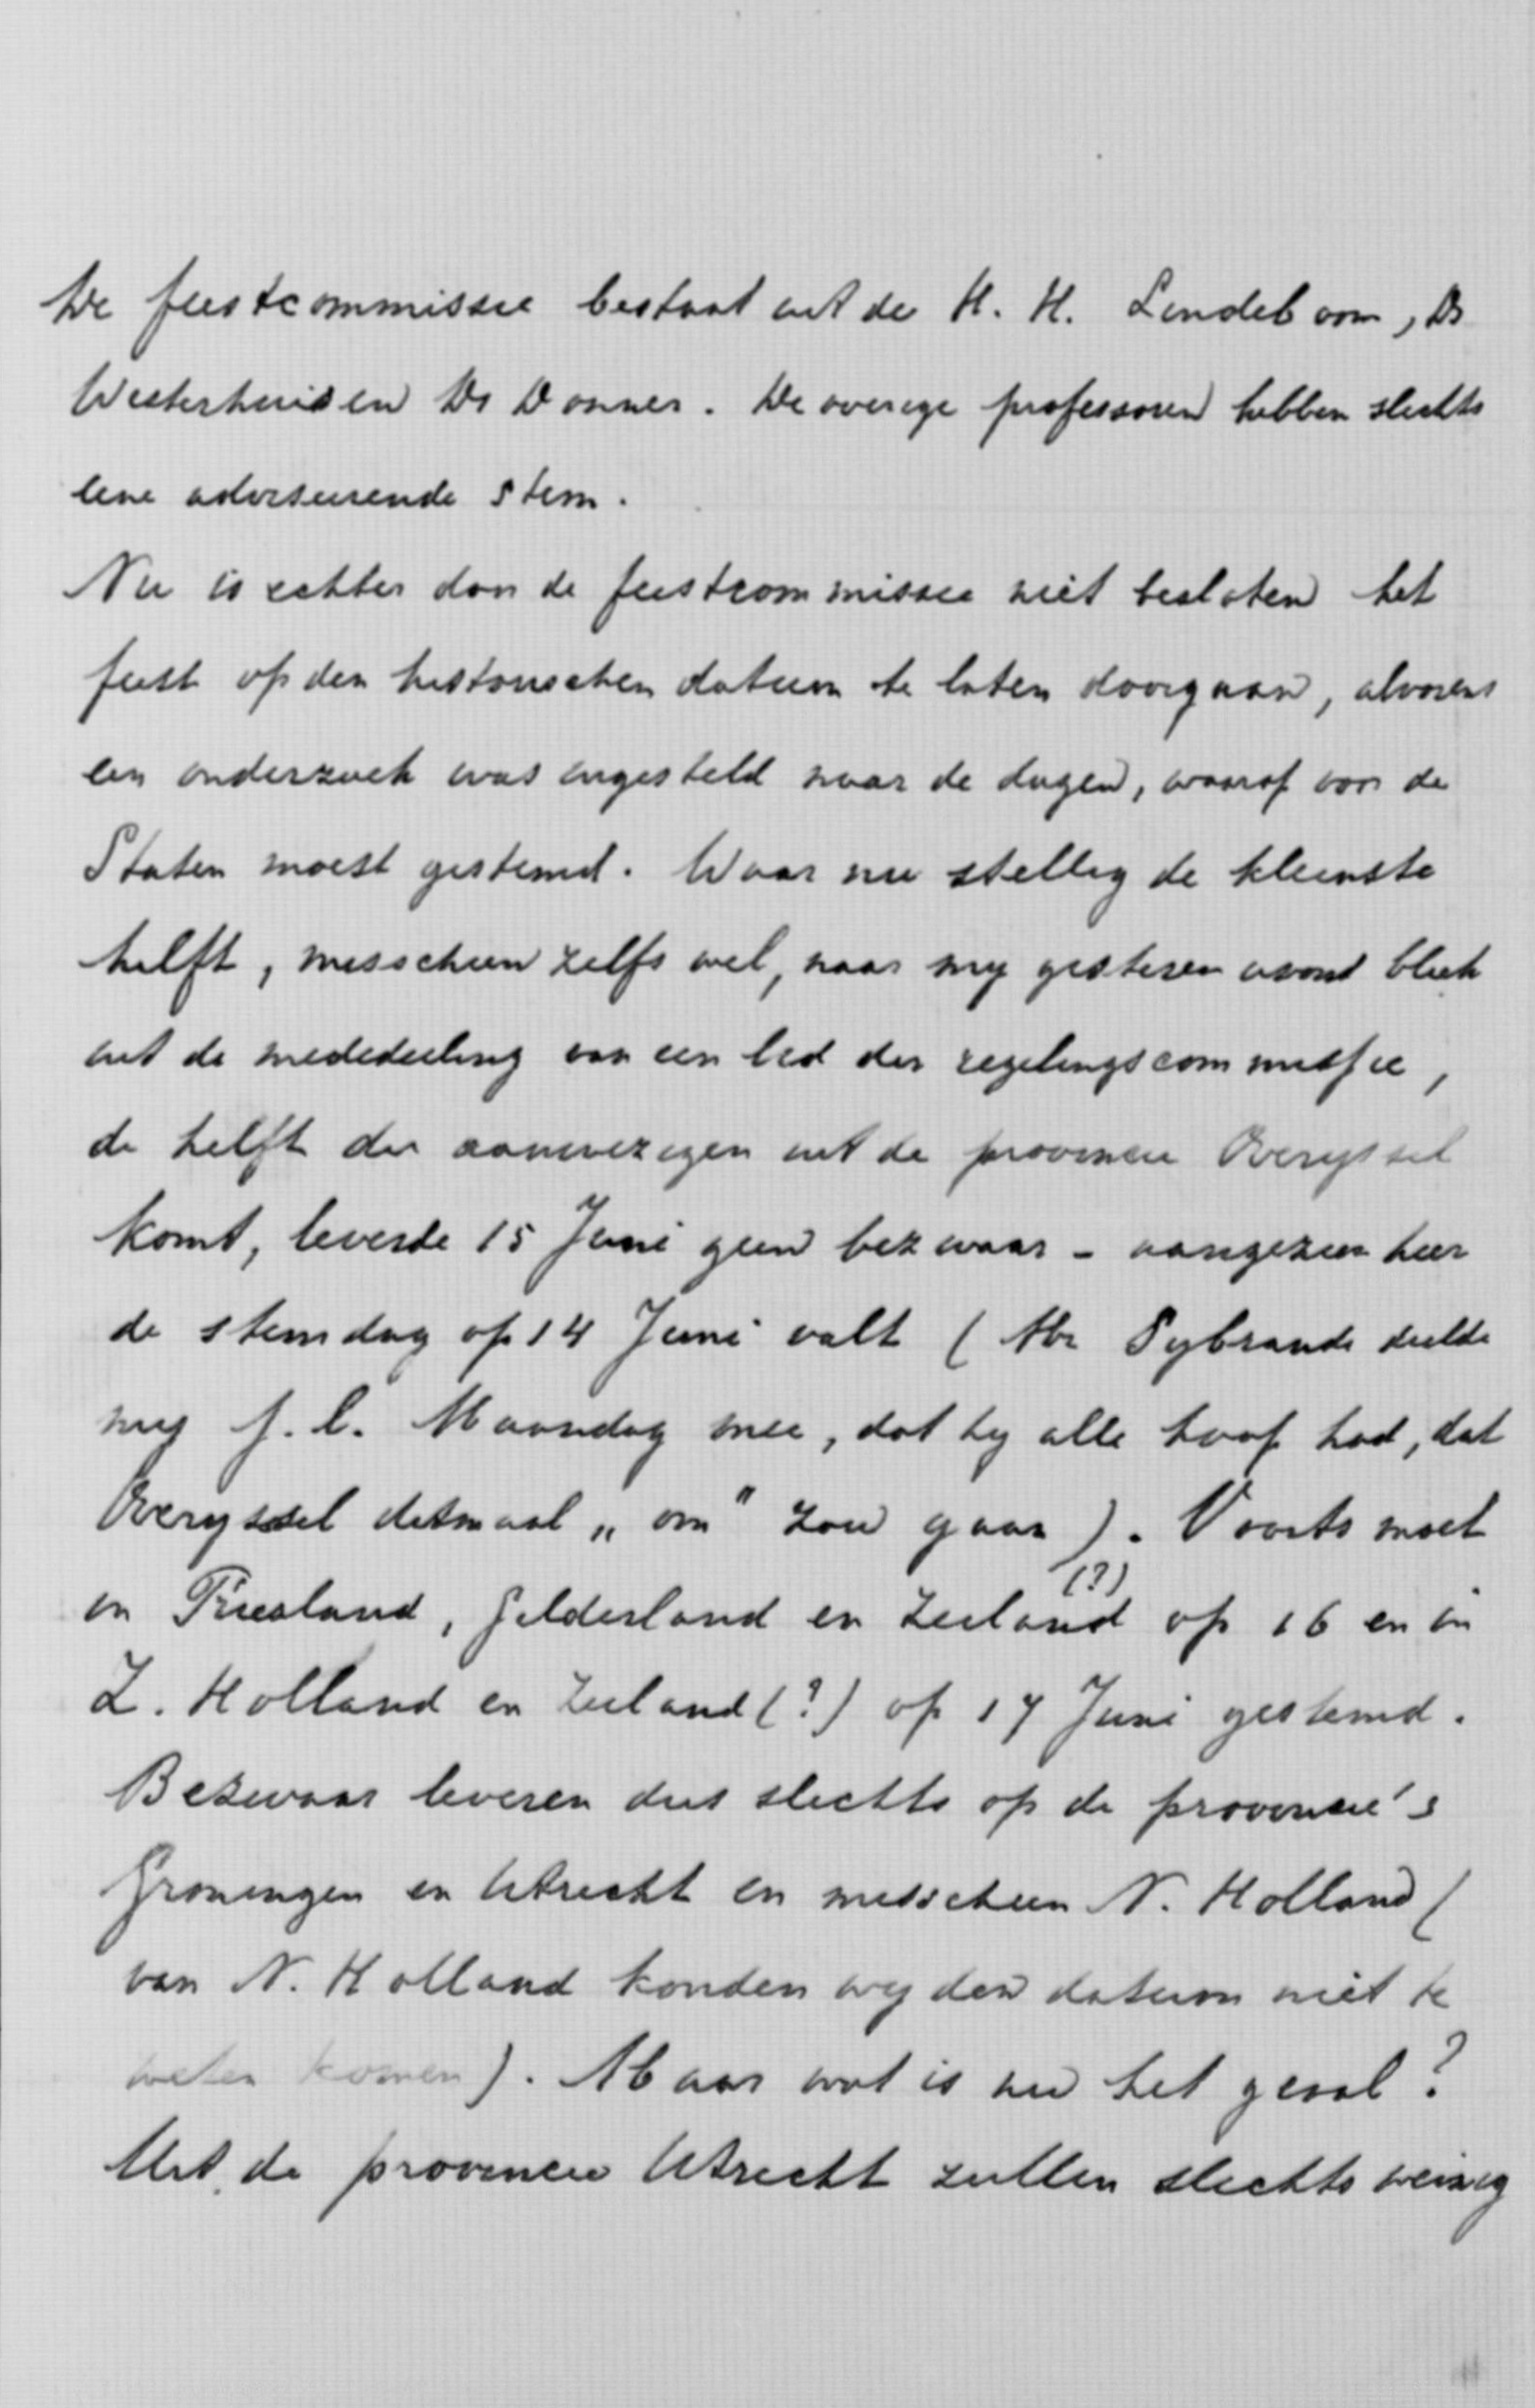 De feestcommissie bestaat uit de H. H. Lindeboom, Ds
Westerhuis en Ds Donner. De overige professoren hebben slechts
eene adviseerende stem.
Nu is echter door de feestcommissie niet besloten het
feest op den historischen datum te laten doorgaan, alvorens
een onderzoek was ingesteld naar de dagen, waarop voor de
Staten moest gestemd. Waar nu stellig de kleinste
helft, misschien zelfs wel, naar mij gisteren avond bleek
uit de mededeeling van een lid der regelingscommissie,
de helft der aanwezigen uit de provincie Overijssel
komt, leverde 15 Juni geen bezwaar – aangezien hier
de stemdag op 14 Juni valt ( Mr Sybrandi deelde
mij j.l. Maandag mee, dat hij alle hoop had, dat
Overijssel ditmaal „ om " zou gaan ). Voorts moet
in Friesland, Gelderland en Zeeland (?) op 16 en in
Z. Holland en Zeeland (?) op 17 Juni gestemd.
Bezwaar leveren dus slechts op de provincie's
Groningen en Utrecht en misschien N. Holland (
van N. Holland konden wij den datum niet te
weten komen ). Maar wat is nu het geval ?
Uit de provincie Utrecht zullen slechts weinig